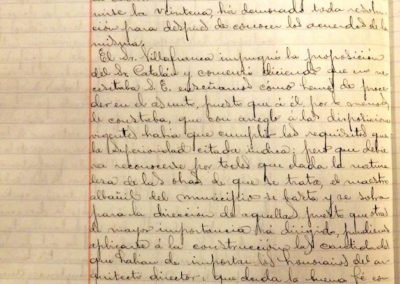 nirse la Veintena, há demorado toda resolu-
ción para despues de conocer los acuerdos de la
misma.
El Sr. Villafranca impugnó la proposición
del Sr. Catalán y comenzó diciendo que no ne-
cesitaba S. E. enseñarnos cómo hemos de proce-
der en el asunto, puesto que á él por lo menos
le constaba, que con arreglo á las disposiciones
vigentes había que cumplir los requisitos que
la superioridad citada indica; pero que debe
reconocerse por todos que dada la natura-
leza de las obras de que se trata, el maestro
albañil del municipio se basta y se sobra
para la dirección de aquellas, puesto que otras
de mayor importancia há dirigido, pudiendo
aplicarse á la construcción las cantidades
que habían de importar los honorarios del ar-
quitecto director; que dada la buena fé con